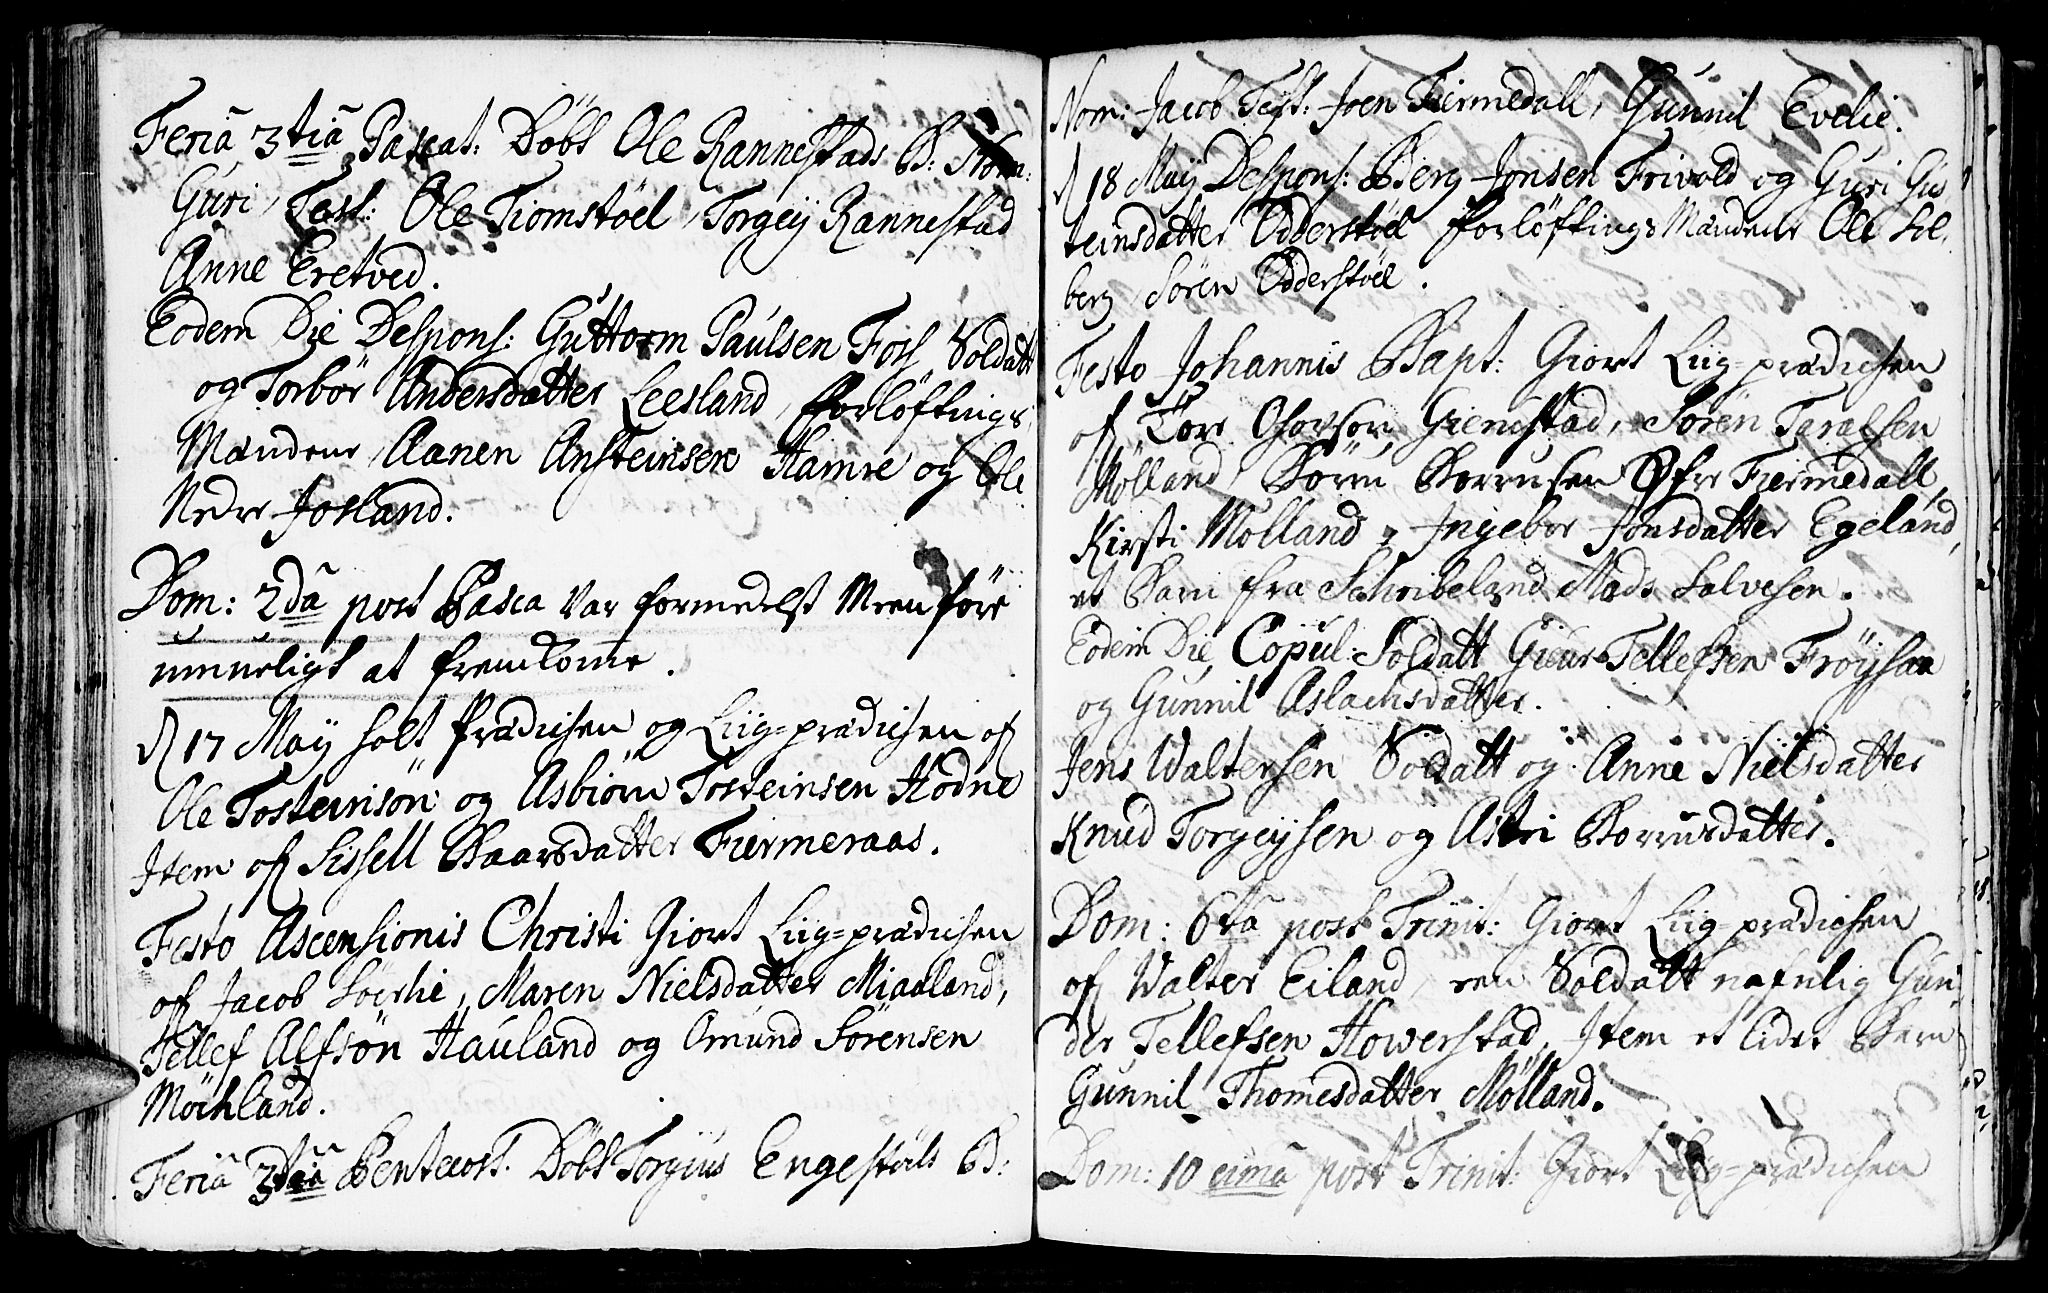 Feriâ 3tiâ Pascat: Döbt Ole Rannestads B: Nom:
Guri, Test: Ole Tiomstöel, Torgeÿ Rannestad
Anne Eretved.
Eodem Die Despons: Guttorm Paulsen Foss Soldatt
og Torbör Andersdatter Leesland, Forlöftnings
Mændene Aanen Ansteinsen Hamre og Ole
Nedre Josland.
Dom: 2dâ post Pasca var formedelst Meenföre
umueligt at fremkome.
d 17 Maÿ holt Prædichen og Liig-prædichen of
Ole Tosteinsön og Asbiörn Tosteinsen Hodne
Item of Sissell Baarsdatter Fiermeraas.
Festo Ascensionis Christi Giort Liig-prædichen
of Jacob Löerhi, Maren Nielsdatter Miaaland,
Tellef Alfsön Hauland og Omund Sörensen
Möchland.
Feriâ 3tiâ Pentecost. Döbt Torgius Engestöils B:
Nom: Jacob Test: Joen Fiermedall, Gunnil Evelie.
d 18 Maÿ Despons: Berg Jonsen Frivold og Guri Gu
teinsdatter Odderstöel Forlöftnings Mændene Ole Lil
berg, Sören Odderstöel.
Festo Johannis Bapt: Giort Liig-prædichen
of Tore Giemestad, Sören Taraldsen
Mölland, Sören Borrusen Öfre Fiermedall,
Kirsti Mölland, Ingebor Jonsdatter Egeland,
et Barn fra Schreibeland Mads Salvesen.
Eodem Die Copul: Soldatt Gieur Tellefsen Fröÿsaa
og Gunnil Aslachsdatter.
Jens Waltersen Soldatt og Anne Nielsdatter
Knud Torgeÿsen og Astri Borrusdatter.
Dom: 6tâ post Trinit: Giort Liig-prædichen
of Walter Eiland, een Soldatt nafnlig Gun
der Tellefsen Howerstad, Item et lidet Barn
Gunnil Thomesdatter Mölland.
Dom: 10 cimâ post Trinit: Giort Liig-prædichen